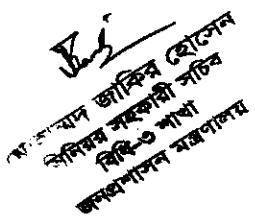 জাকির হোসেন
সিনিয়র সহকারী সচিব
বিধি-৩ শাখা
জনপ্রশাসন মন্ত্রণালয়